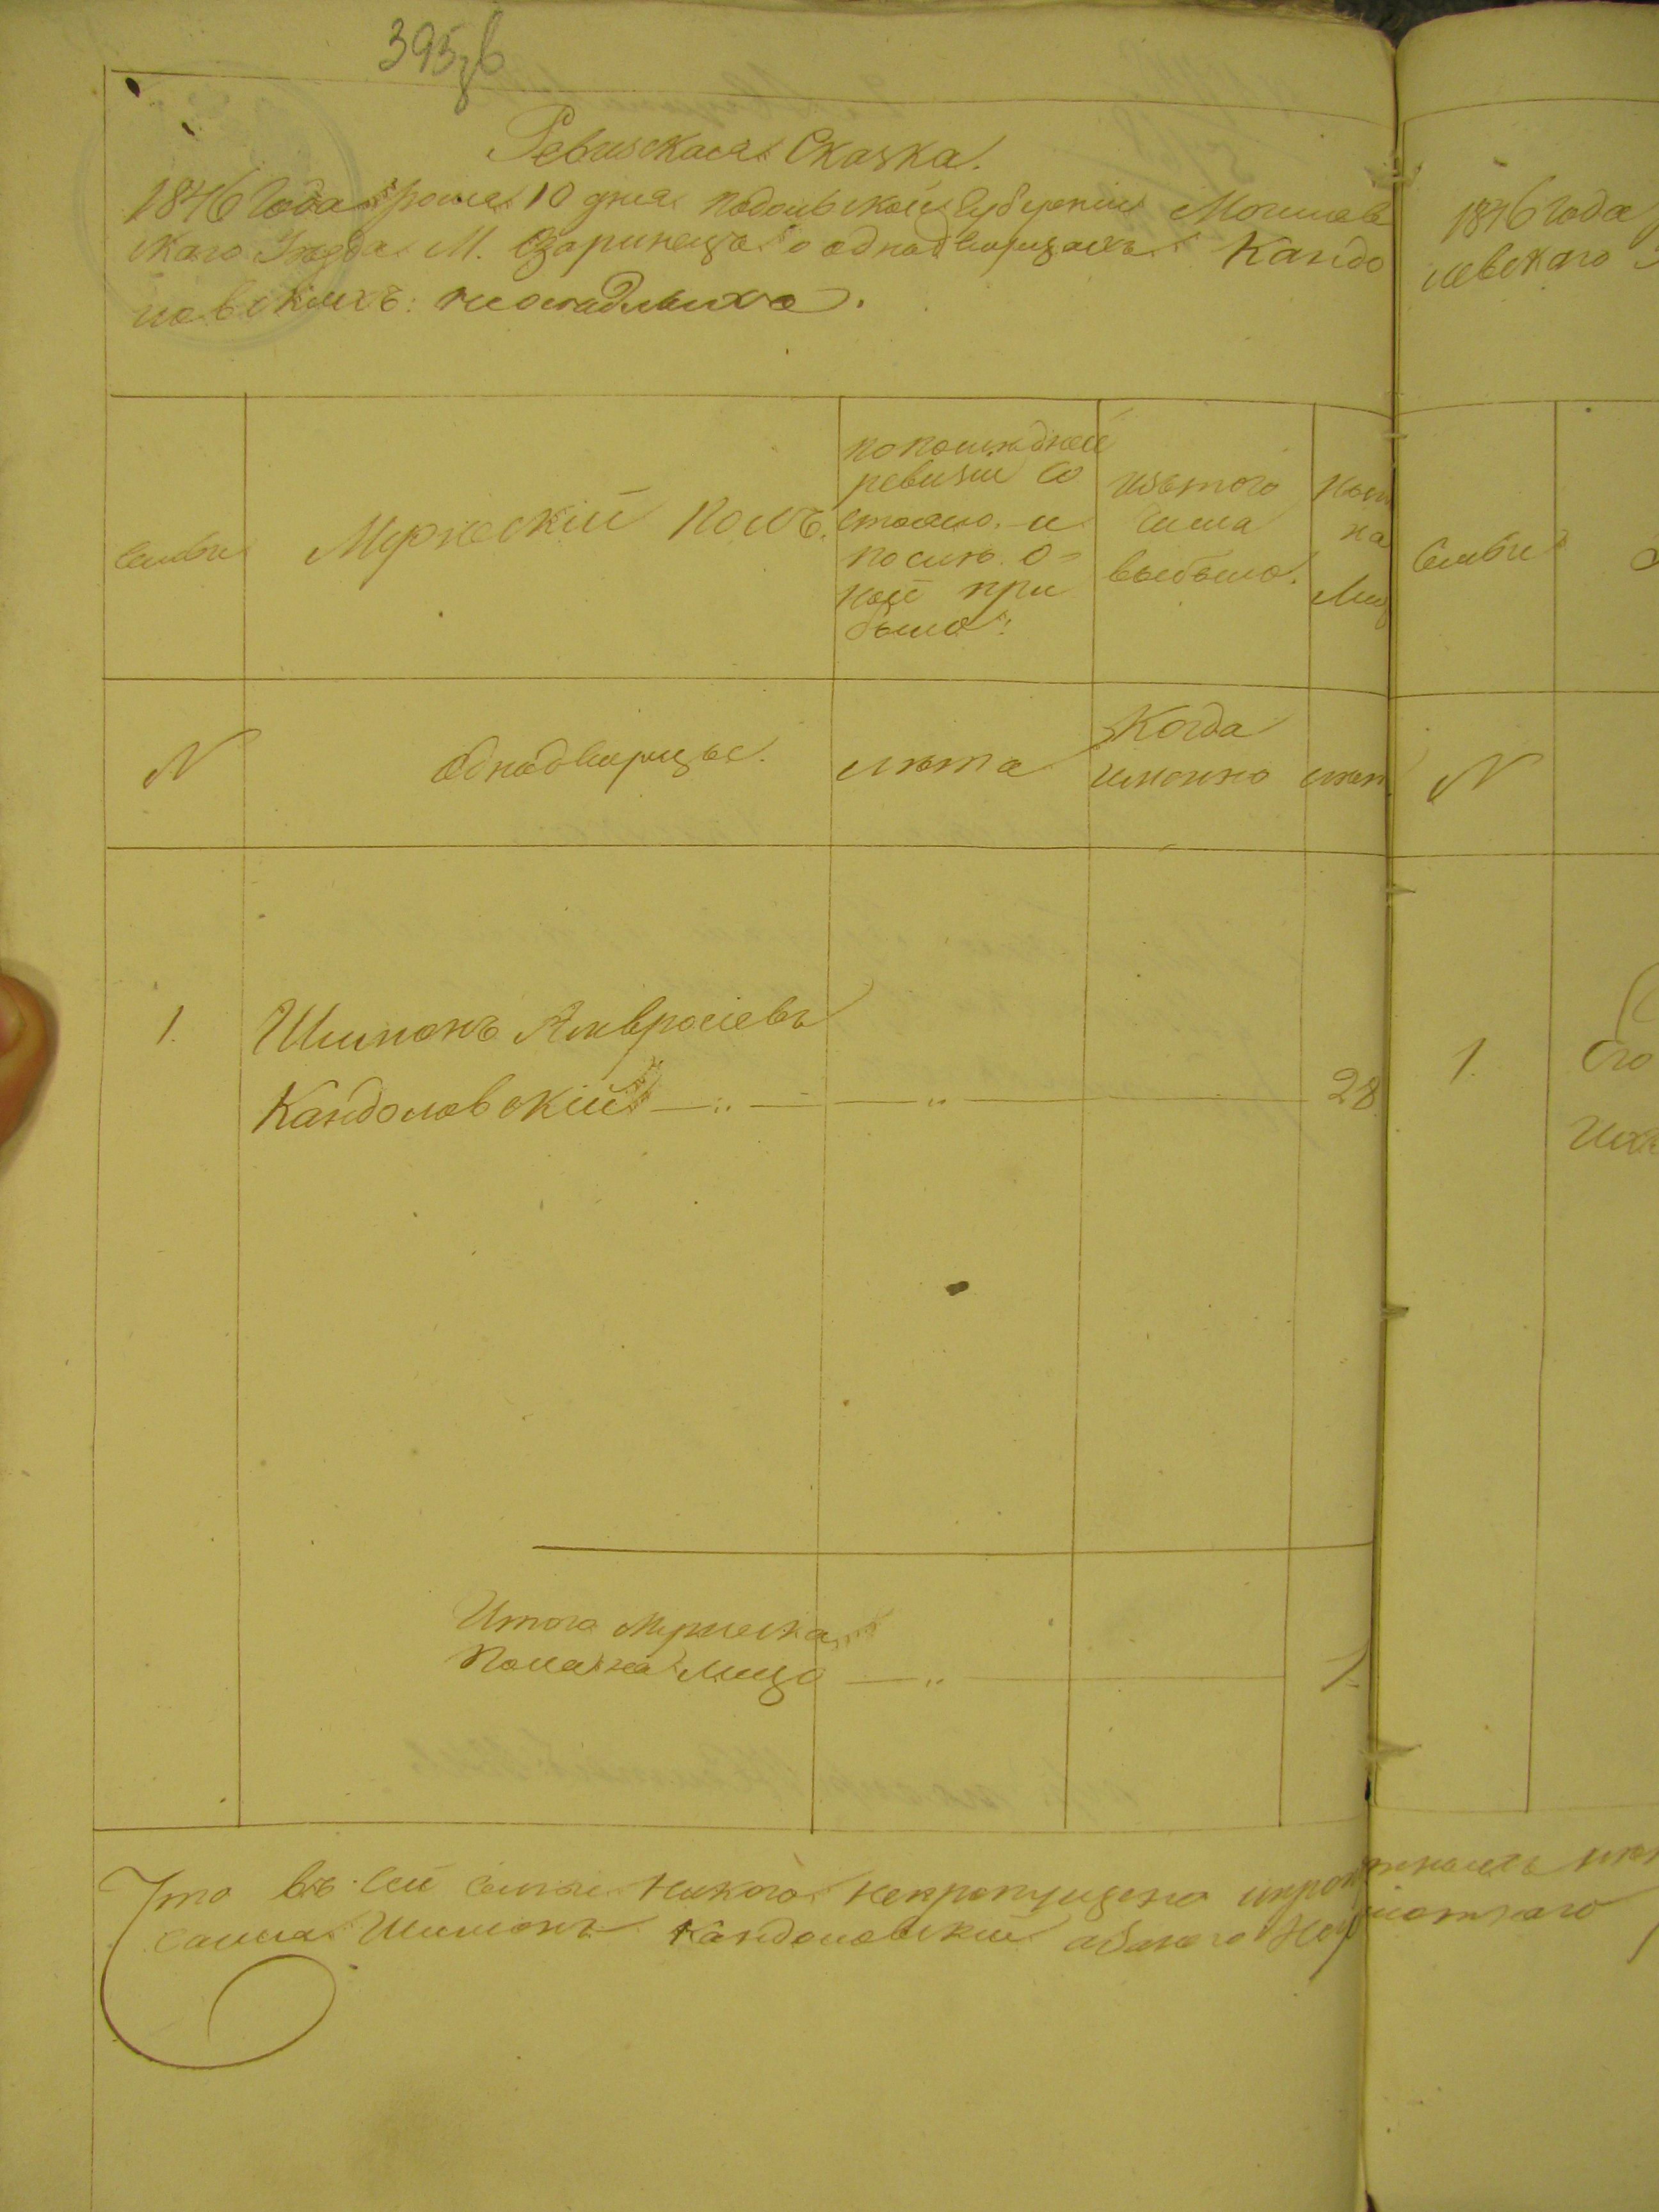 395 зв
Ревизская Сказка.
1846 Года 10 дня подольской Губернии Могилев
скаго Уезда М. Озаринецъ о однодворцахъ Кандо
ловскихъ: неоседлыхъ.
Семьи
Мужескій полъ.
по последней
ревизіи со
стояло. и
после о-
ной при
было:
изътого
числа
выбыло.
ныне
на
Лиц
N
однодворцы.
лета
Когда
имянно
лет
1.
Шимонъ Амвросіевъ
Кандоловскій — „ — — „ — 28.
Итого Мужеска
Пола на Лицо — „ — 1.
Что въ сей семьи никого непропущено
Шимонъ Кандоловскій
1846 года
левскаго
Семьи
N
1.
Его